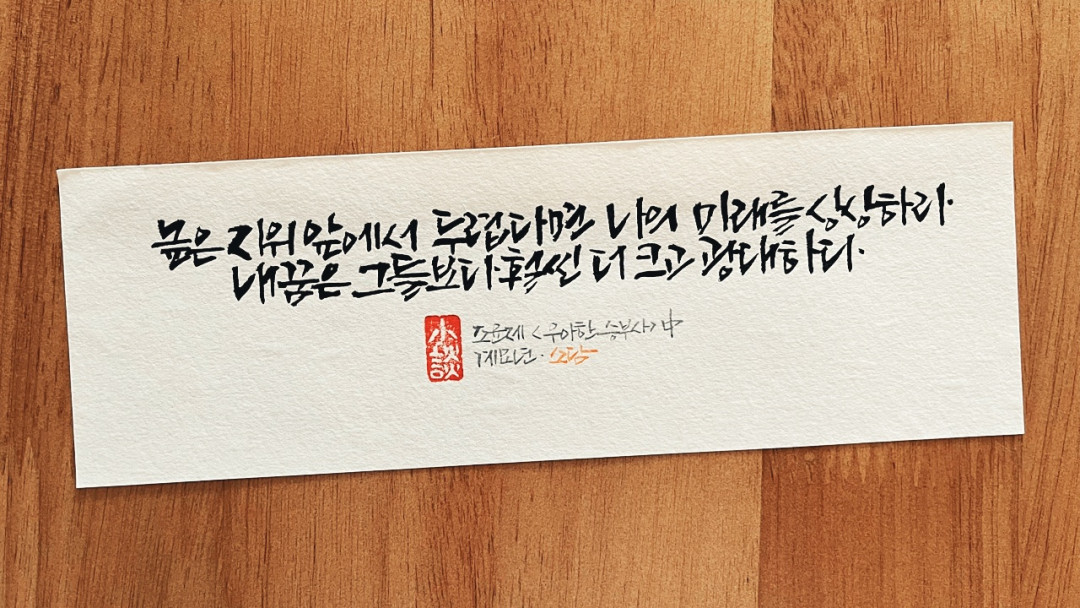 높은 지위 앞에서 두렵다면 나의 미래를 상상하라.
내꿈은 그들보다 훨씬 더 크고 광대하다.
小談
조윤제 <우아한 승부사> 中
계묘년. 소담